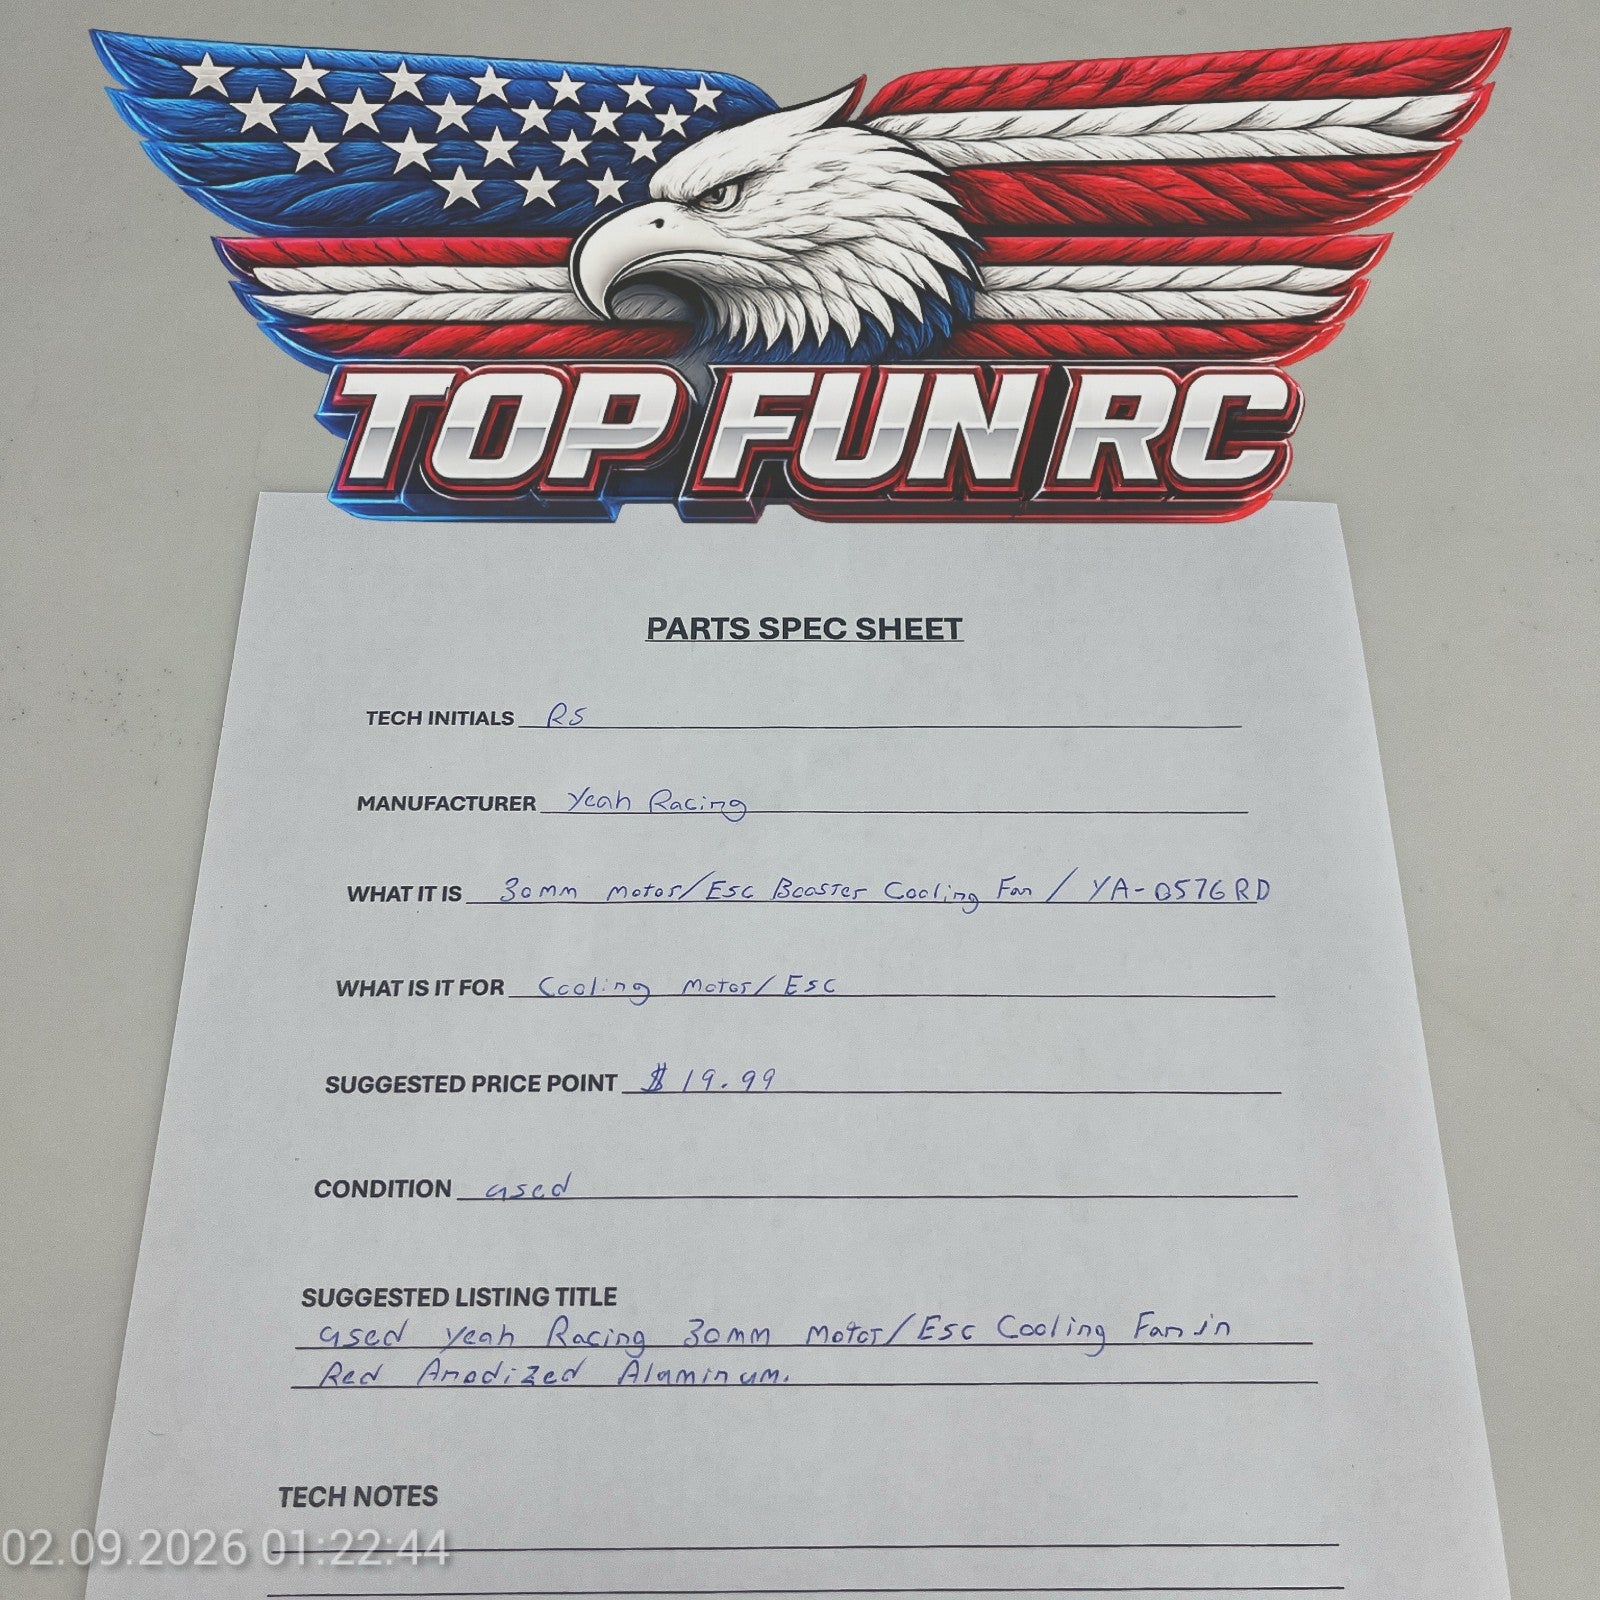 TOP FUN RC
PARTS SPEC SHEET
TECH INITIALS RS
MANUFACTURER Yeah Racing
WHAT IT IS 30mm Motor/Esc Booster Cooling Fan / YA-0576RD
WHAT IS IT FOR Cooling Motor/Esc
SUGGESTED PRICE POINT $19.99
CONDITION used
SUGGESTED LISTING TITLE
used Yeah Racing 30mm Motor/Esc Cooling Fan in
Red Anodized Aluminum.
TECH NOTES
02.09.2026 01:22:44